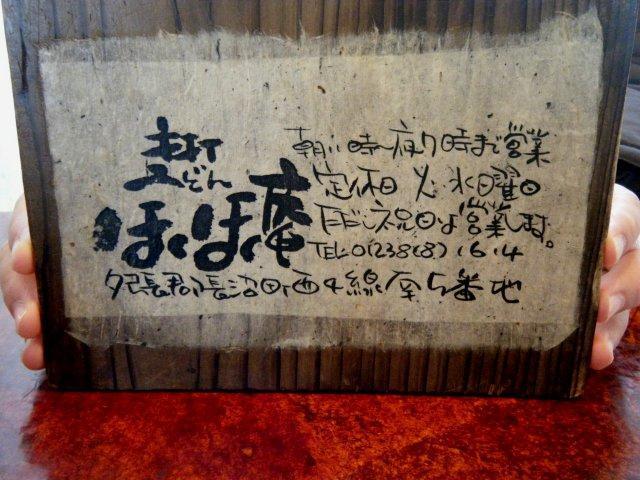 うどん
ほくほく庵
朝11時~夜7時まで営業
定休日 火・水曜日
ただし祝日は営業します。
TEL 01238(8)1614
夕張郡長沼町西4線南5番地